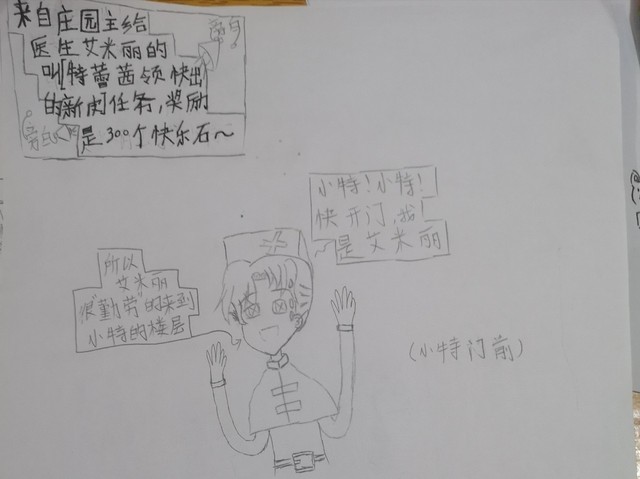 来自庄园主给
医生艾米丽的
叫特蕾茜领快出
的新皮任务,奖励
是300个快乐石~
旁白
旁白
小特!小特!
快开门,我
是艾米丽
所以
艾米丽
很勤劳的来到
小特的楼层
(小特门前)